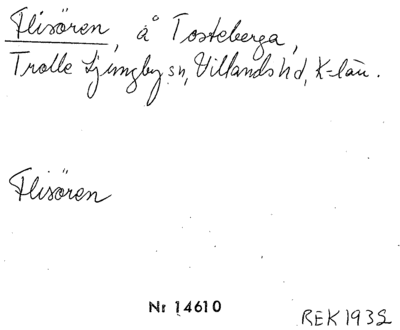 Flisören, å Tosteberga,
Trolle Ljungby sn, Villands hd, K-län.
Flisören
Nr 14610
REK 1932